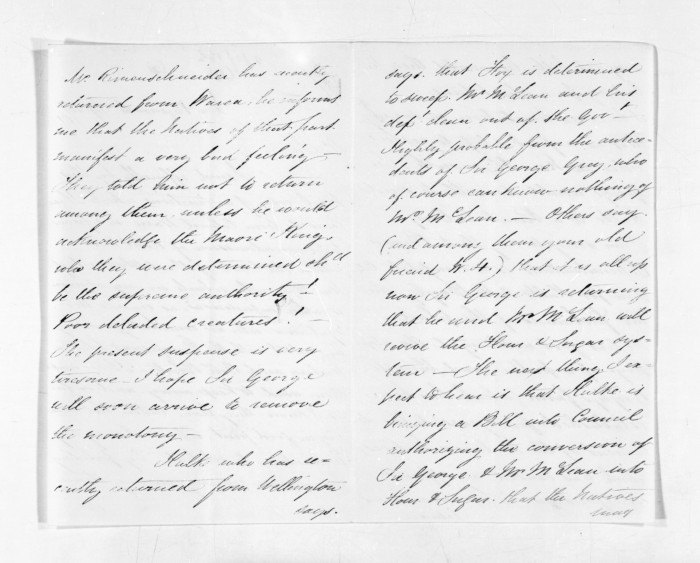 Mr Rimenschneider has recently
returned from Warea, he informs
me that the Natives of that part
manifest a very bad feeling -
They told him not to return
among them, unless he would
acknowledge the Maori King,
who they were determined sh'd
be the supreme authority!
Poor deluded creatures! -
The present suspense is very
tiresome. I hope Sir George
will soon arrive to remove
the monotony -
Hulke who has re-
cently returned from Wellington
says.
says. that Fox is determined
to sweep Mr McLean and his
dept clean out of the Gov-t
Highly probable from the antece-
dents of Sir George Grey, who
of course can know nothing of
Mr McLean. - Others say.
(and among them your old
friend W.H.) that it is all up
now Sir George is returning
that he and Mr McLean will
revive the Flour & Sugar sys-
tem - The next thing I ex-
pect to hear is that Hulke is
bringing a Bill into Council
authorizing the conversion of
Sir George & Mr McLean into
Flour & Sugar. that the Natives
may